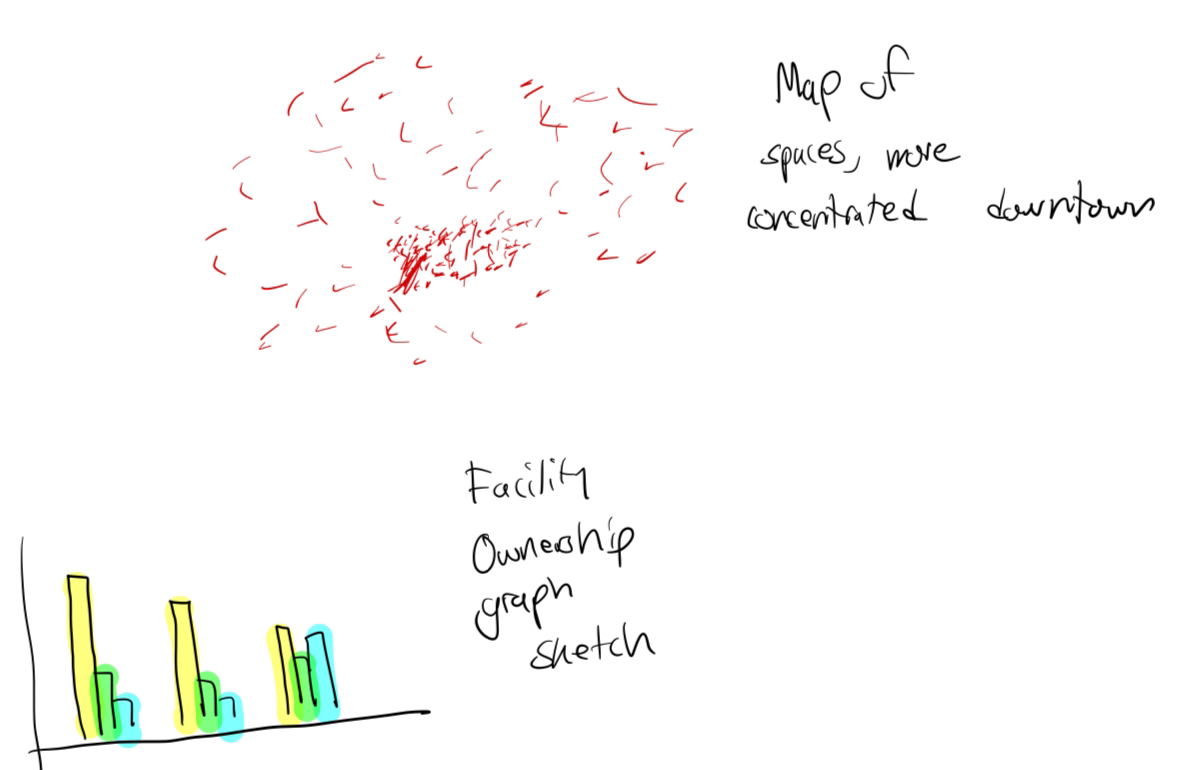 Map of
spaces, more
concentrated downtown
Facility
Ownership
graph
sketch